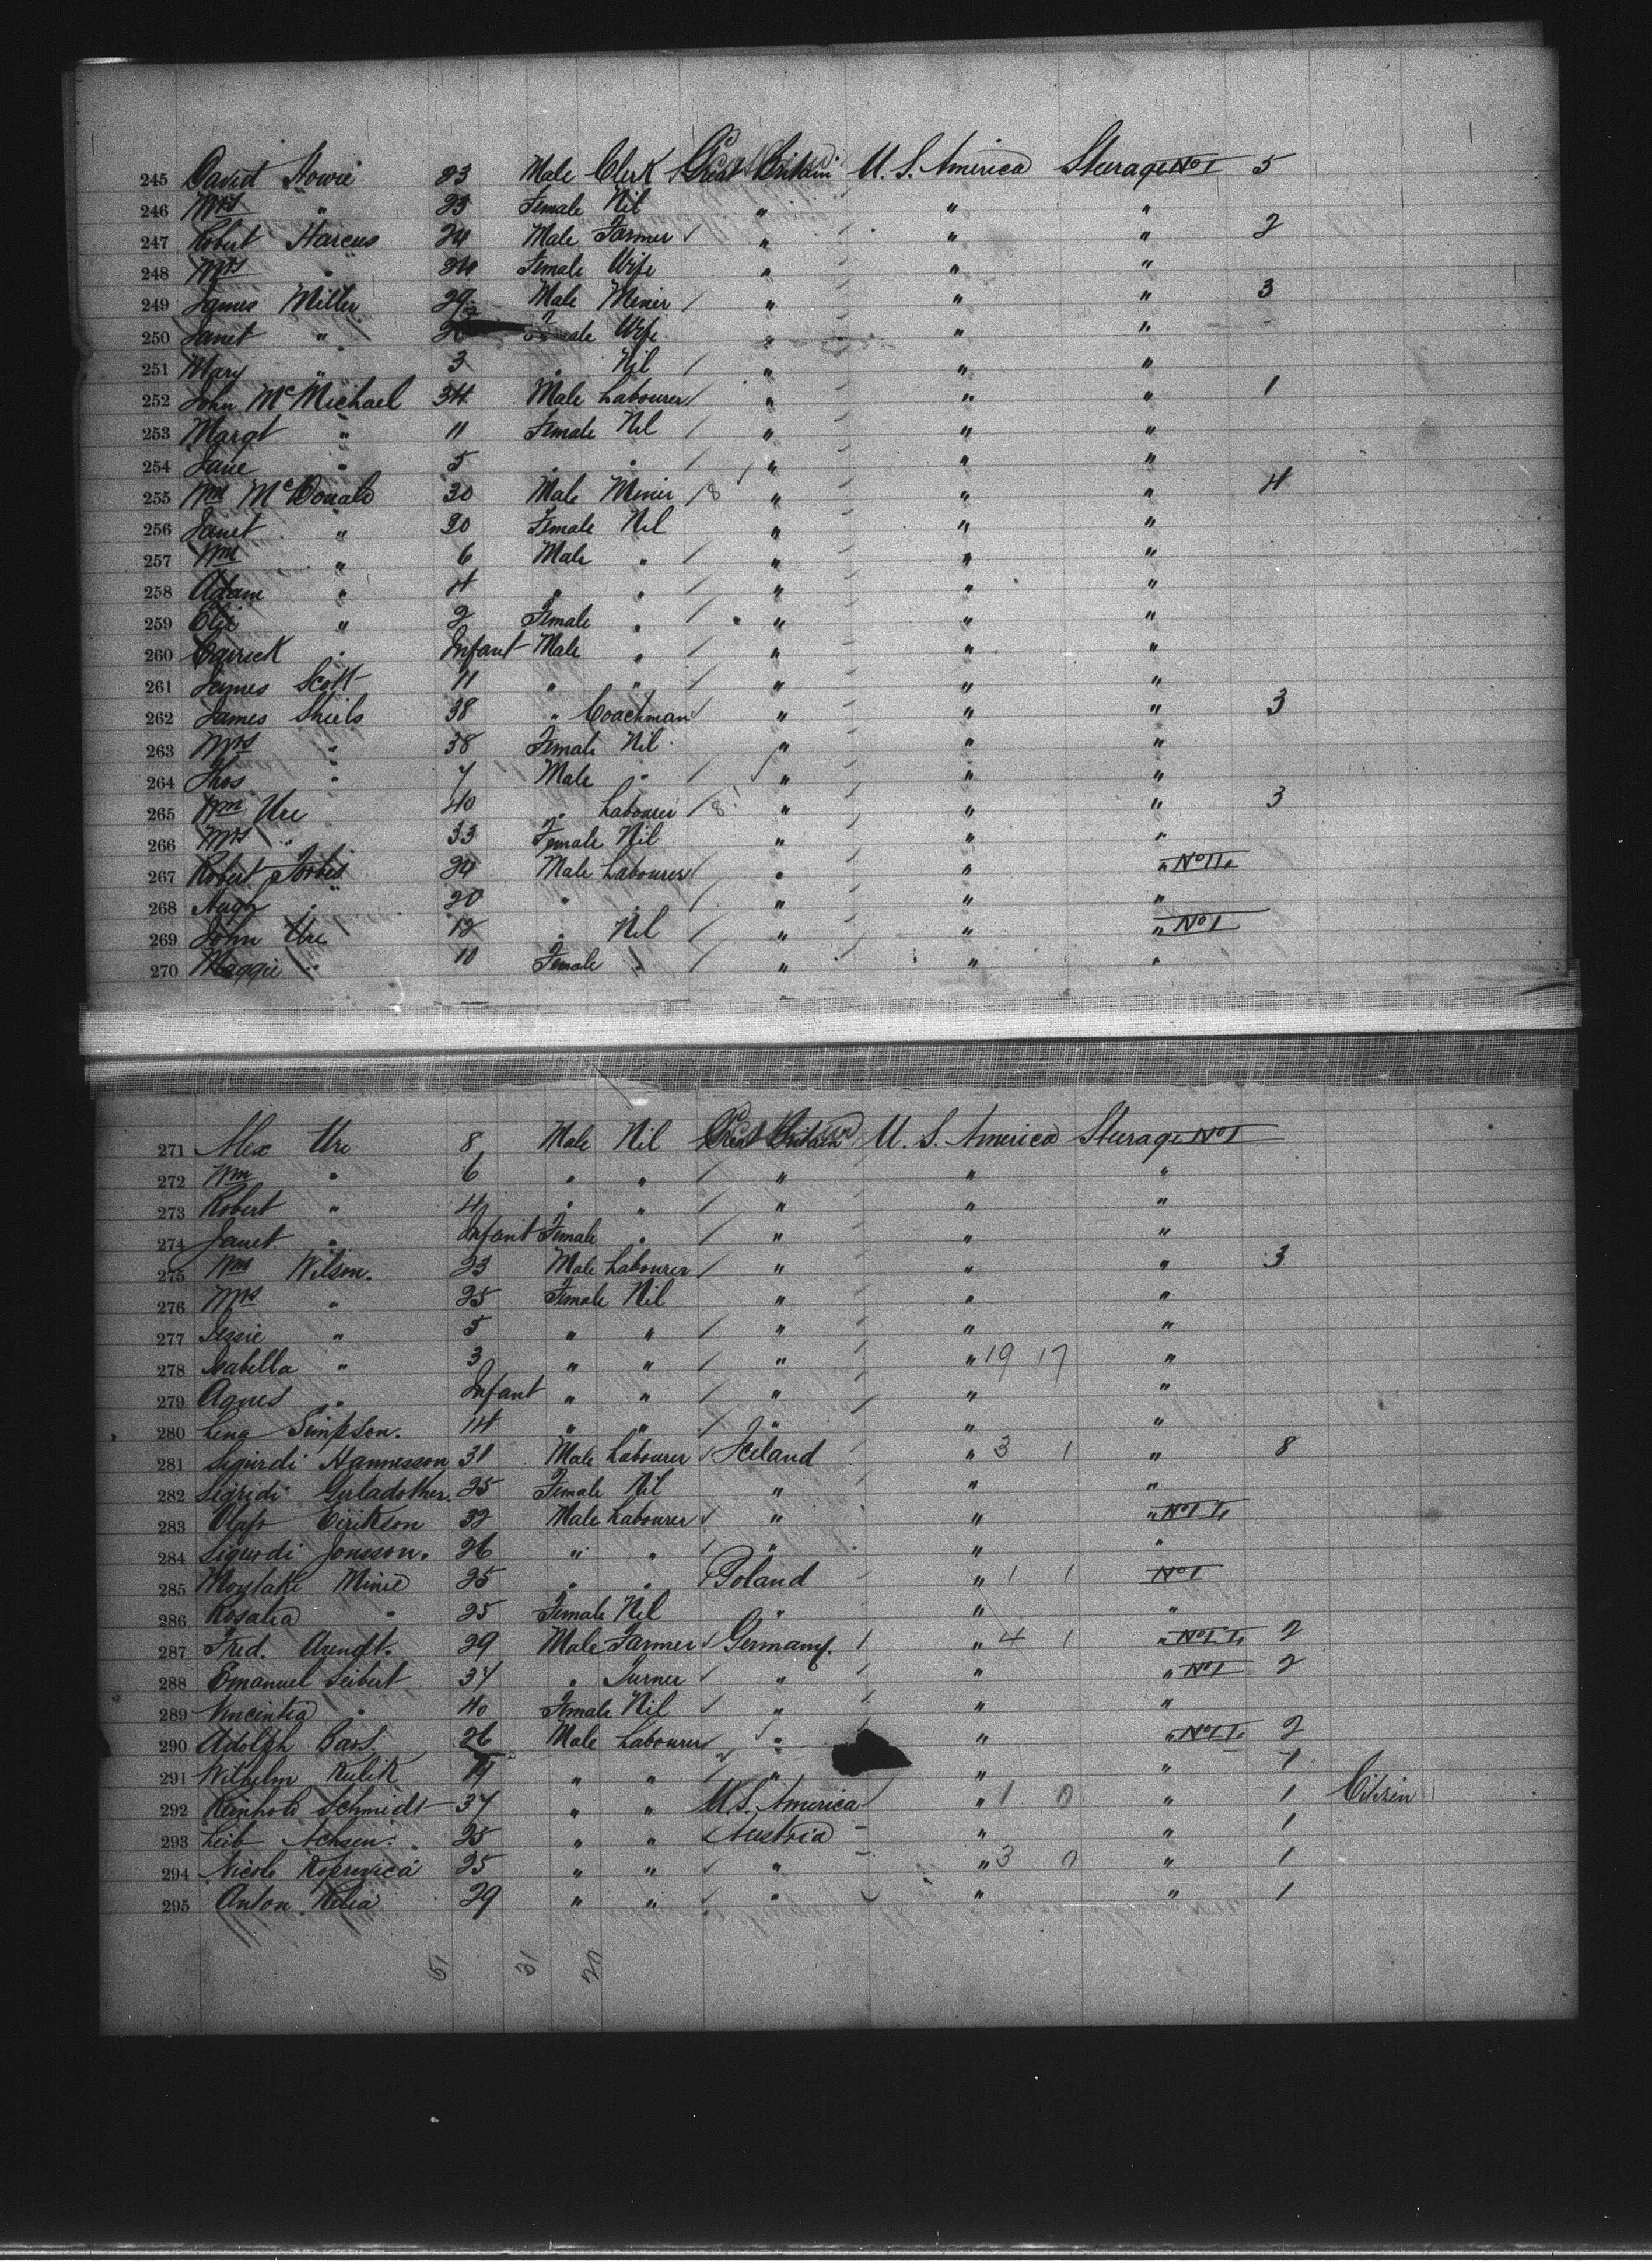 245 David Howie 23 Male Clerk Great Britain U. S. America Steerage No 1 5
246 Mrs " 23 Female Nil " " "
247 Robert Harcus 24 Male Farmer " " " 2
248 Mrs " 24 Female Wife " " "
249 James Miller 29 Male Miner " " " 3
250 Janet " Female Wife " " "
251 Mary " 3 " Nil " " "
252 John McMichael 34 Male Labourer " " " 1
253 Margt " 11 Female Nil " " "
254 Jane " 5 " " " " "
255 Wm McDonald 30 Male Miner 8 " " " 4
256 Janet " 30 Female Nil " " "
257 Wm " 6 Male " " " "
258 Adam " 4 " " " " "
259 Eliz " 2 Female " " " "
260 " Infant Male " " " "
261 James Scott 11 " " " " "
262 James Shiels 38 " Coachman " " " 3
263 Mrs " 38 Female Nil " " "
264 Thos " 7 Male " " " "
265 Wm Ure 40 " Labourer 8 " " " 3
266 Mrs " 33 Female Nil " " "
267 Robert Forbes 24 Male Labourer " " "
268 Hugh " 20 " " " " "
269 John Ure 12 " Nil " " " No 1
270 Maggie " 10 Female " " " "
271 Alex Ure 8 Male Nil Great Britain U. S. America Steerage No 1
272 Wm " 6 " " " " "
273 Robert " 4 " " " " "
274 Janet " Infant Female " " " "
275 Wm Wilson. 23 Male Labourer " " " 3
276 Mrs " 25 Female Nil " " "
277 Jessie " 5 " " " " "
278 Isabella " 3 " " " " 19 17 "
279 Agnes " Infant " " " " "
280 Lena Simpson. 14 " " " " "
281 Sigurdi Hannesson 31 Male Labourer Iceland " 3 1 " 8
282 Sigridi 25 Female Nil " " "
283 Olafr Eirikson 32 Male Labourer " " "
284 Sigurdi Jonsson. 26 " " " " "
285 Minie 25 " " Poland " 1 1 No 1
286 Rosalia " 25 Female Nil " " "
287 Fred. Arendt. 29 Male Farmer Germany. " 4 1 " 2
288 Emanuel Seibert 34 " Turner " " " No 1 2
289 Vincentia " 40 Female Nil " " "
290 Adolph 26 Male Labourer " " " 2
291 Wilhelm Kulik 19 " " " " " 1
292 Reinhold Schmidt 34 " " U.S. America " 1 0 " 1 Citizen
293 Leib 25 " " Austria " " 1
294 Nicolo 25 " " " " 3 0 " 1
295 Anton 29 " " " " " 1
51 31 20